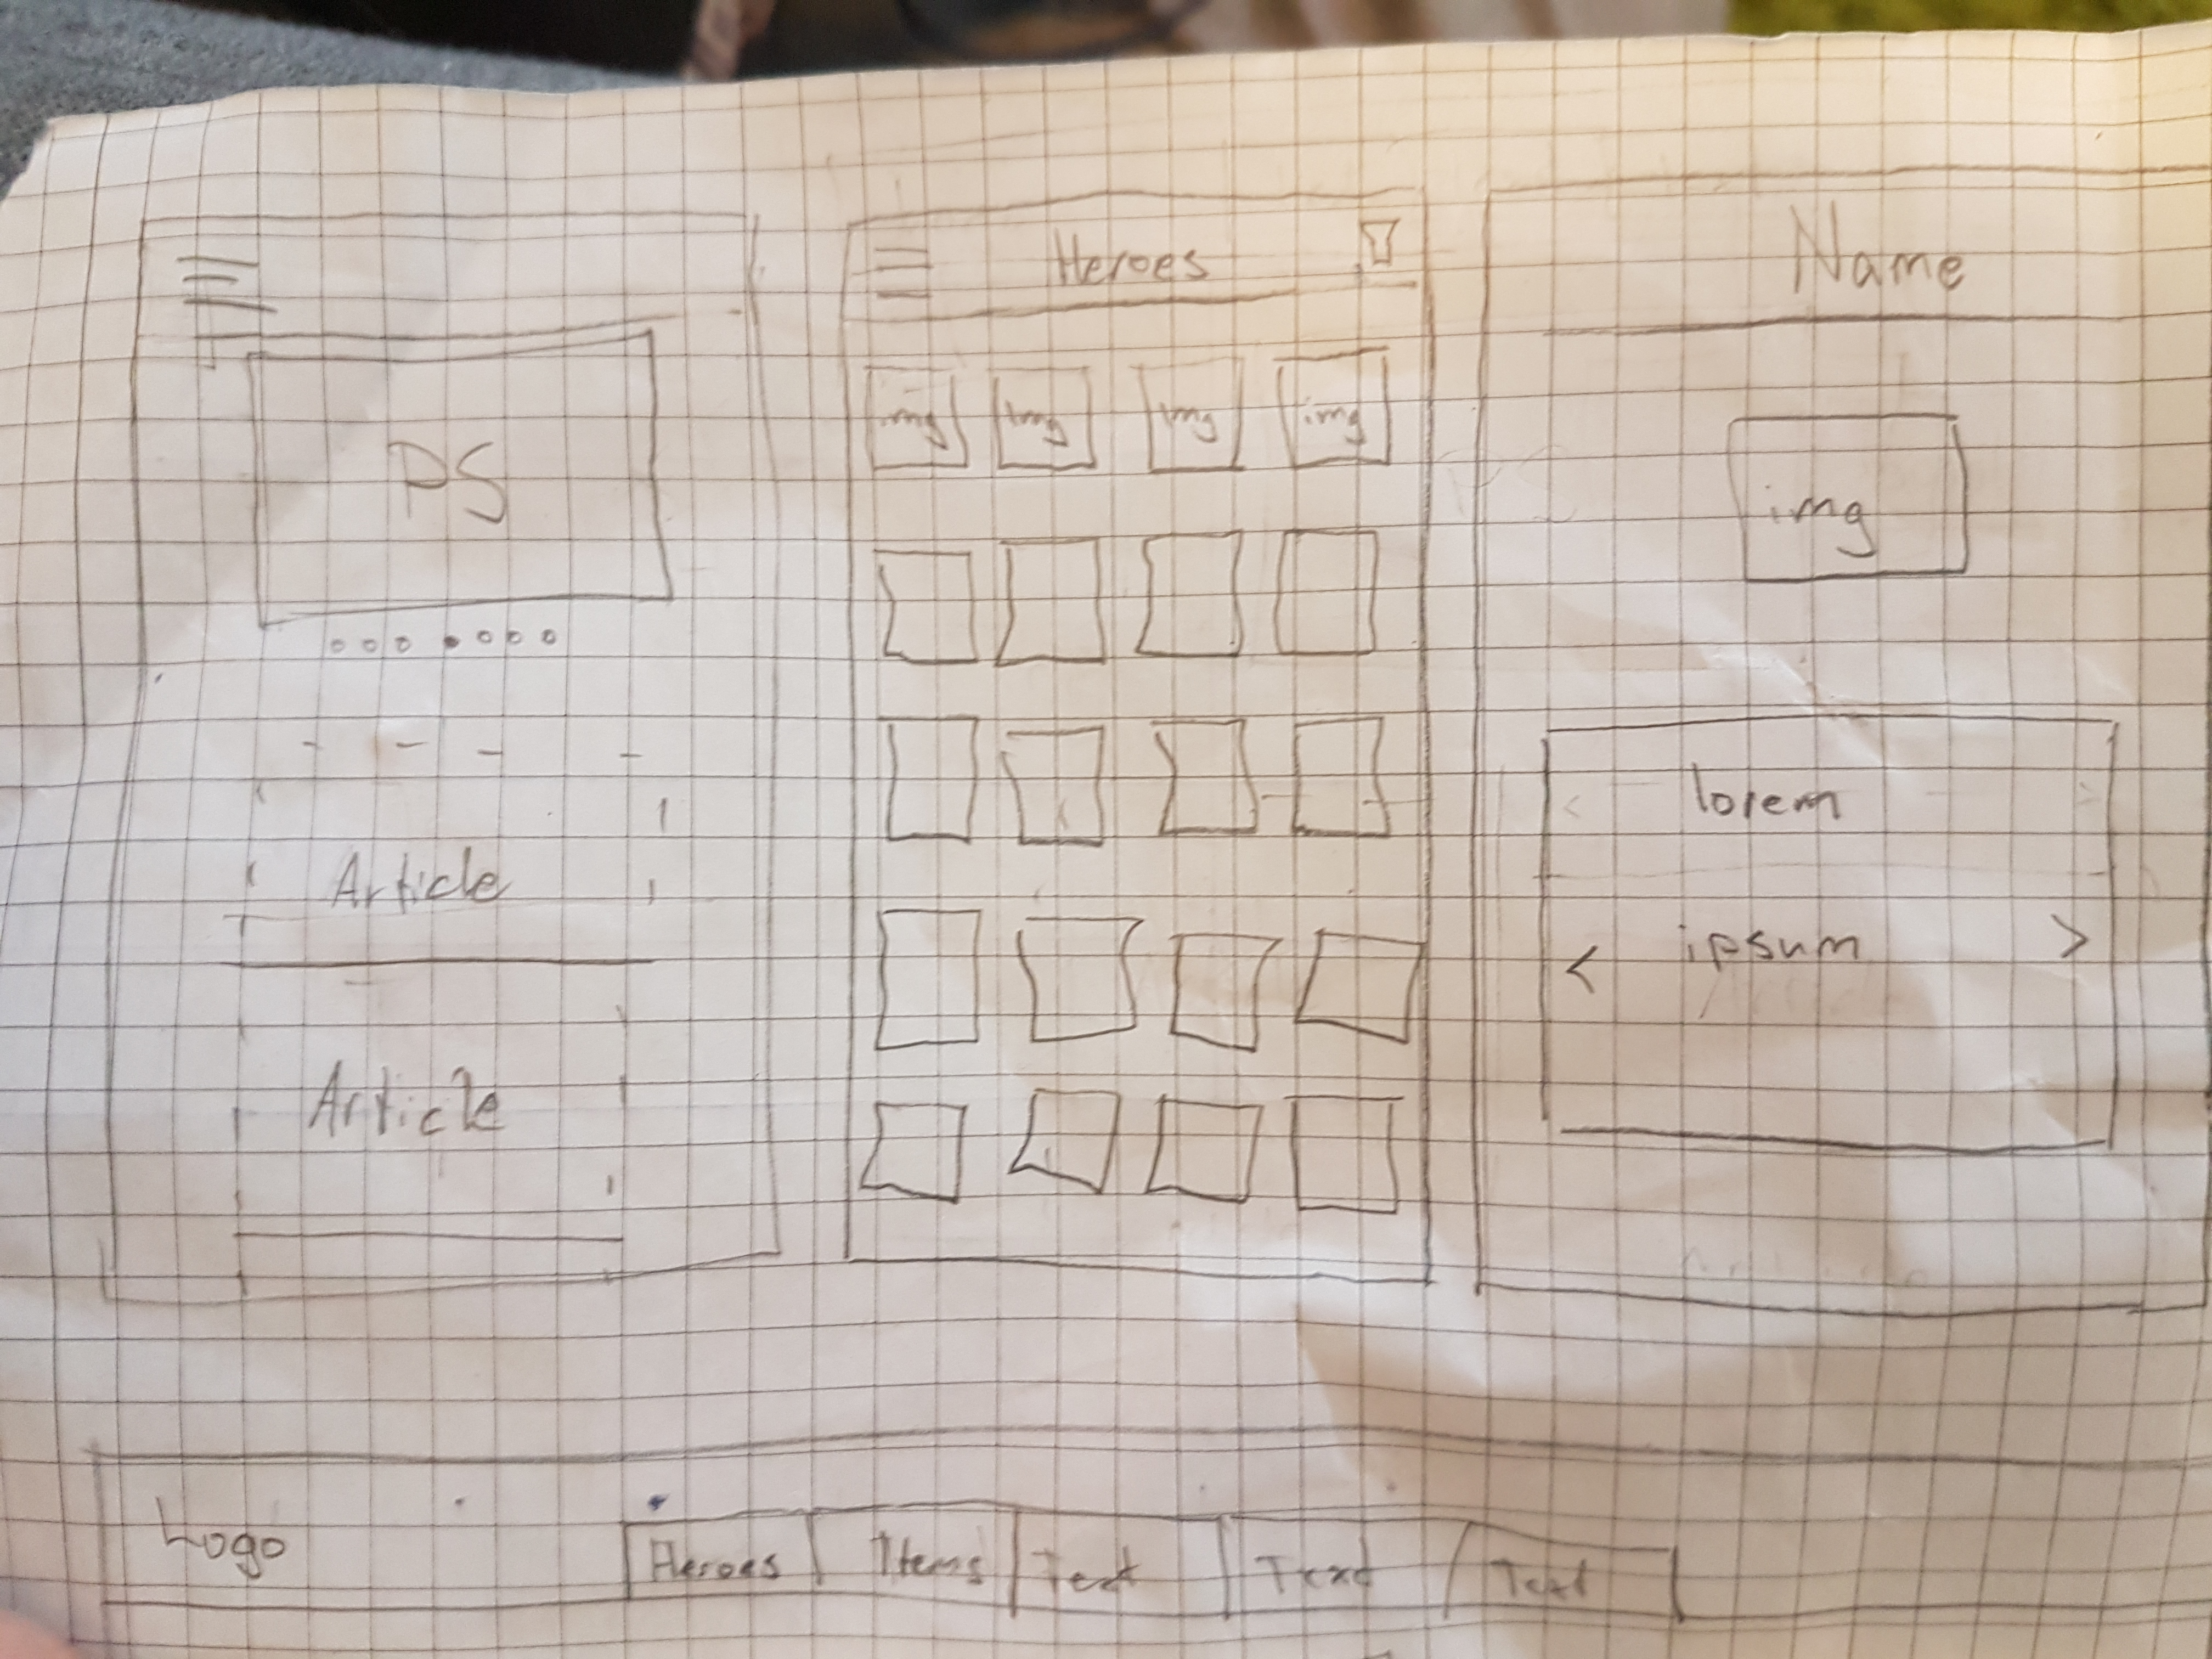 PS
Article
Article
Heroes
img img img img
Name
img
lorem
< ipsum >
Logo Heroes Items Text Text Text